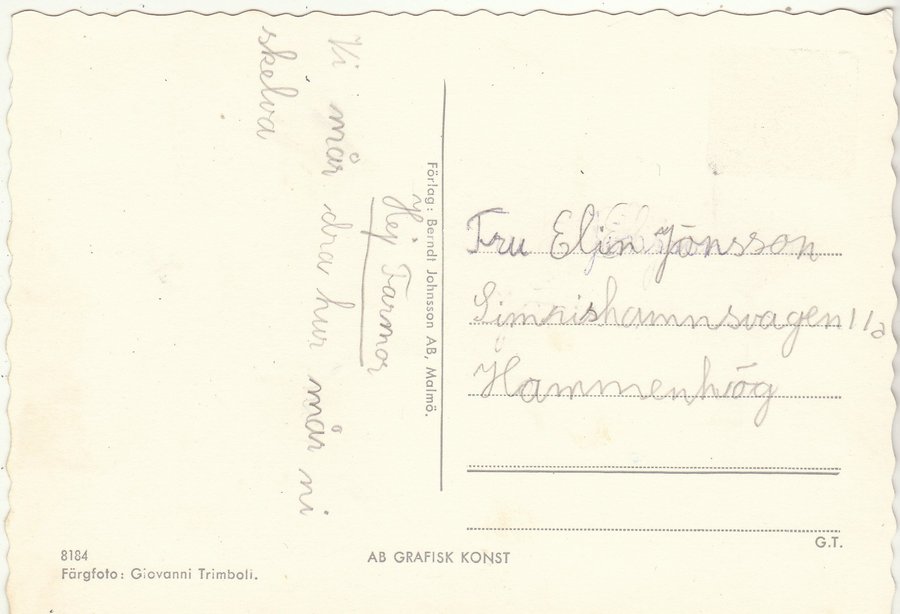 Hej Farmor
Vi mår dra hur mår ni
skelva
Förlag: Berndt Johnsson AB, Malmö.
Fru Elin Jönsson
Simrishamnsvagen 11a
Hammenhög
G.T.
8184
Färgfoto: Giovanni Trimboli.
AB GRAFISK KONST